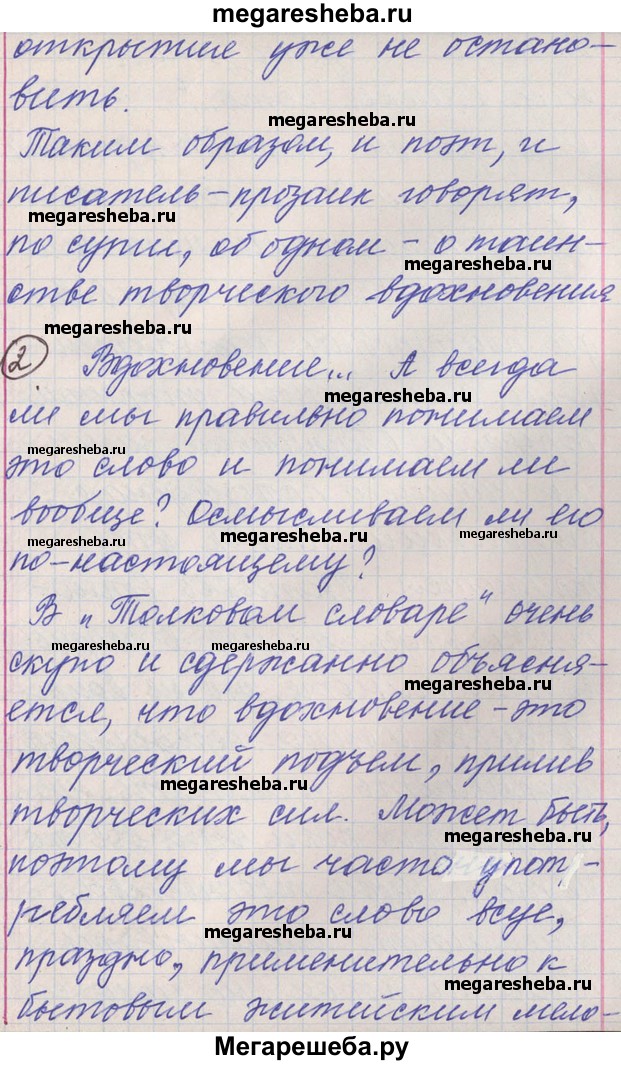 megaresheba.ru
открытие уже не остано-
вить.
megaresheba.ru
Таким образом, и поэт, и
megaresheba.ru
писатель-прозаик говорят,
megaresheba.ru
по сути, об одном - о таин-
megaresheba.ru
стве творческого вдохновения
megaresheba.ru
2 Вдохновение... А всегда
megaresheba.ru
ли мы правильно понимаем
megaresheba.ru
это слово и понимаем ли
megaresheba.ru
вообще? Осмысливаем ли его
megaresheba.ru
megaresheba.ru
по-настоящему?
В „Толковом словаре" очень
megaresheba.ru
megaresheba.ru
скупо и сдержанно объясня-
megaresheba.ru
ется, что вдохновение - это
творческий подъем, прилив
megaresheba.ru
творческих сил. Может быть,
megaresheba.ru
поэтому мы часто упот-
megaresheba.ru
ребляем это слово всуе,
megaresheba.ru
праздно, применительно к
megaresheba.ru
бытовым житейским мело-
megaresheba.ru
Мегарешеба.ру